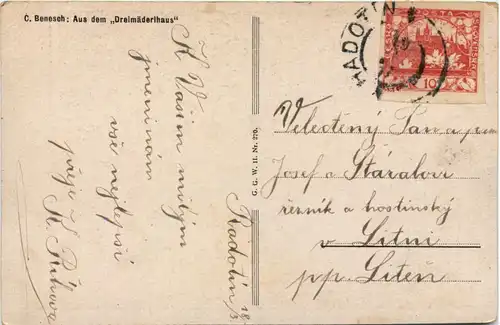 C. Benesch: Aus dem „Dreimäderlhaus"
K Vašim milým
jmeninám
vše nejlepší
přeje K.
Radotín 18/3
G. G. W. II. Nr. 270.
RADOTÍN
POŠTA
10
Velectěný Pan a paní
Josef a
řezník a hostinský
v Litni
pp. Liteň